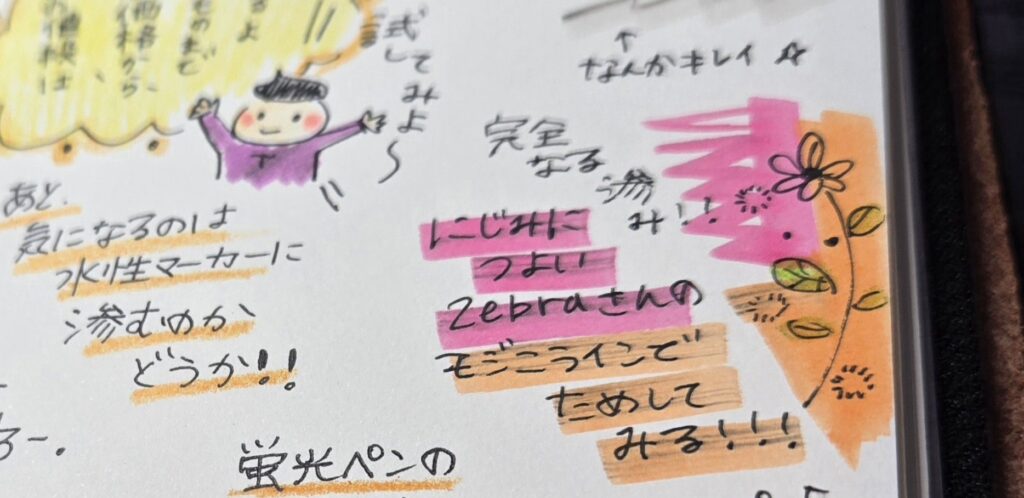 試してみよ〜
↑
なんかキレイ☆
完全
なる
滲
み!!
あと、
気になるのは
水性マーカーに
滲むのか
どうか!!
にじみに
つよい
Zebraさんの
モジニラインで
ためして
みる!!!
蛍光ペンの